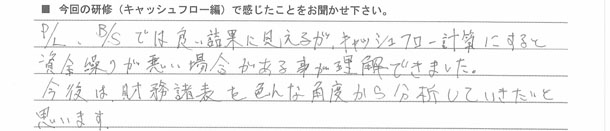 ■ 今回の研修（キャッシュフロー編）で感じたことをお聞かせ下さい。
P/L、B/Sでは良い結果に見えるが、キャッシュフロー計算にすると
資金繰りが悪い場合がある事が理解できました。
今後は、財務諸表を色んな角度から分析していきたいと
思います。